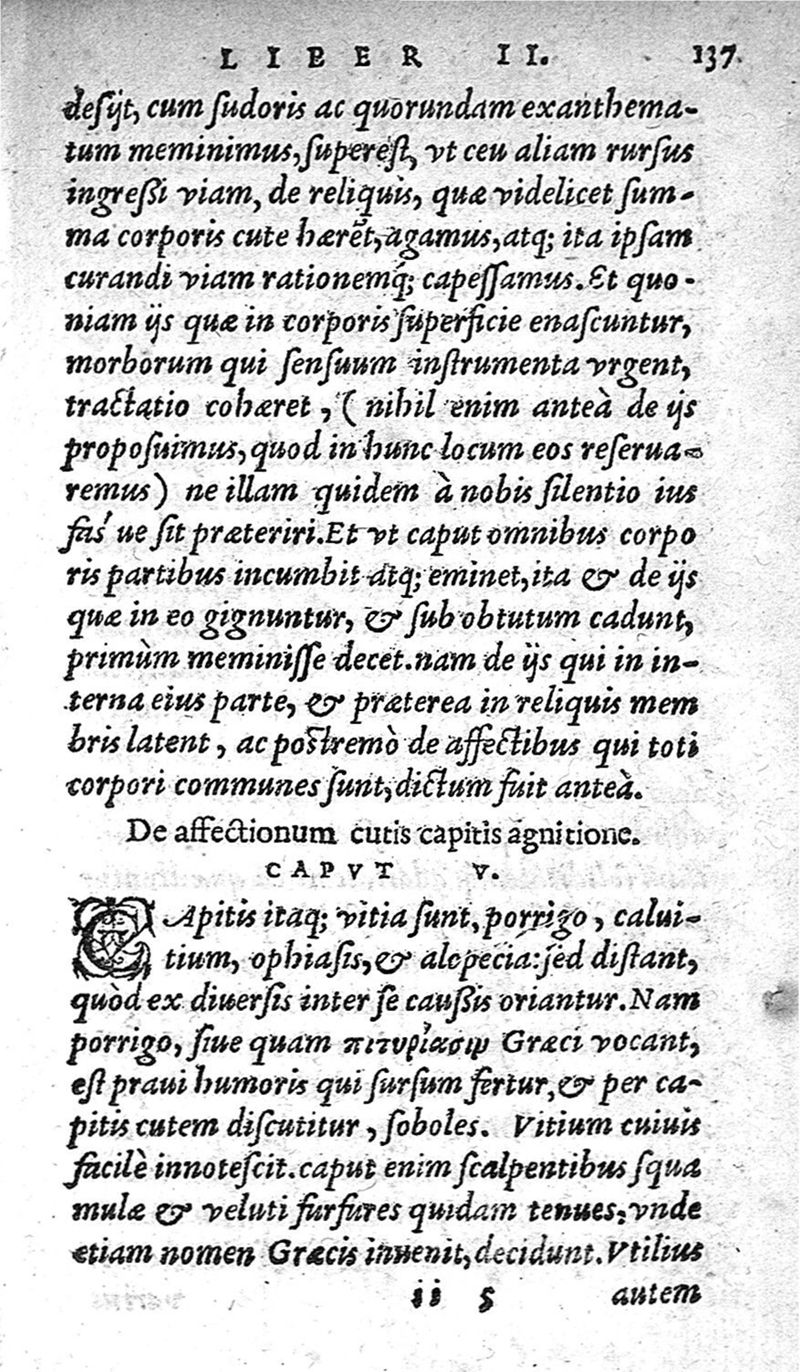 LIBER II. 137
desijt, cum sudoris ac quorundam exanthema-
tum meminimus, superest, vt ceu aliam rursus
ingressi viam, de reliquis, quæ videlicet sum-
ma corporis cute hærẽt, agamus, atq; ita ipsam
curandi viam rationemq́; capessamus. Et quo-
niam ijs quæ in corporis superficie enascuntur,
morborum qui sensuum instrumenta vrgent,
tractatio cohæret, (nihil enim anteà de ijs
proposuimus, quod in hunc locum eos reserua-
remus) ne illam quidem à nobis silentio ius
fás ue sit præteriri. Et vt caput omnibus corpo
ris partibus incumbit atq; eminet, ita & de ijs
quæ in eo gignuntur, & sub obtutum cadunt,
primùm meminisse decet. nam de ijs qui in in-
terna eius parte, & præterea in reliquis mem
bris latent, ac postremò de affectibus qui toti
corpori communes sunt, dictum fuit anteà.
De affectionum cutis capitis agnitione.
CAPVT V.
CApitis itaq; vitia sunt, porrigo, calui-
tium, ophiasis, & alopecia: sed distant,
quòd ex diuersis inter se caussis oriantur. Nam
porrigo, siue quam πιτυρίασιμ Græci vocant,
est praui humoris qui sursum fertur, & per ca-
pitis cutem discutitur, soboles. Vitium cuiuis
facilè innotescit. caput enim scalpentibus squa
mulæ & veluti furfures quidam tenues, vnde
etiam nomen Græcis inuenit, decidunt. Vtilius
ii 5 autem